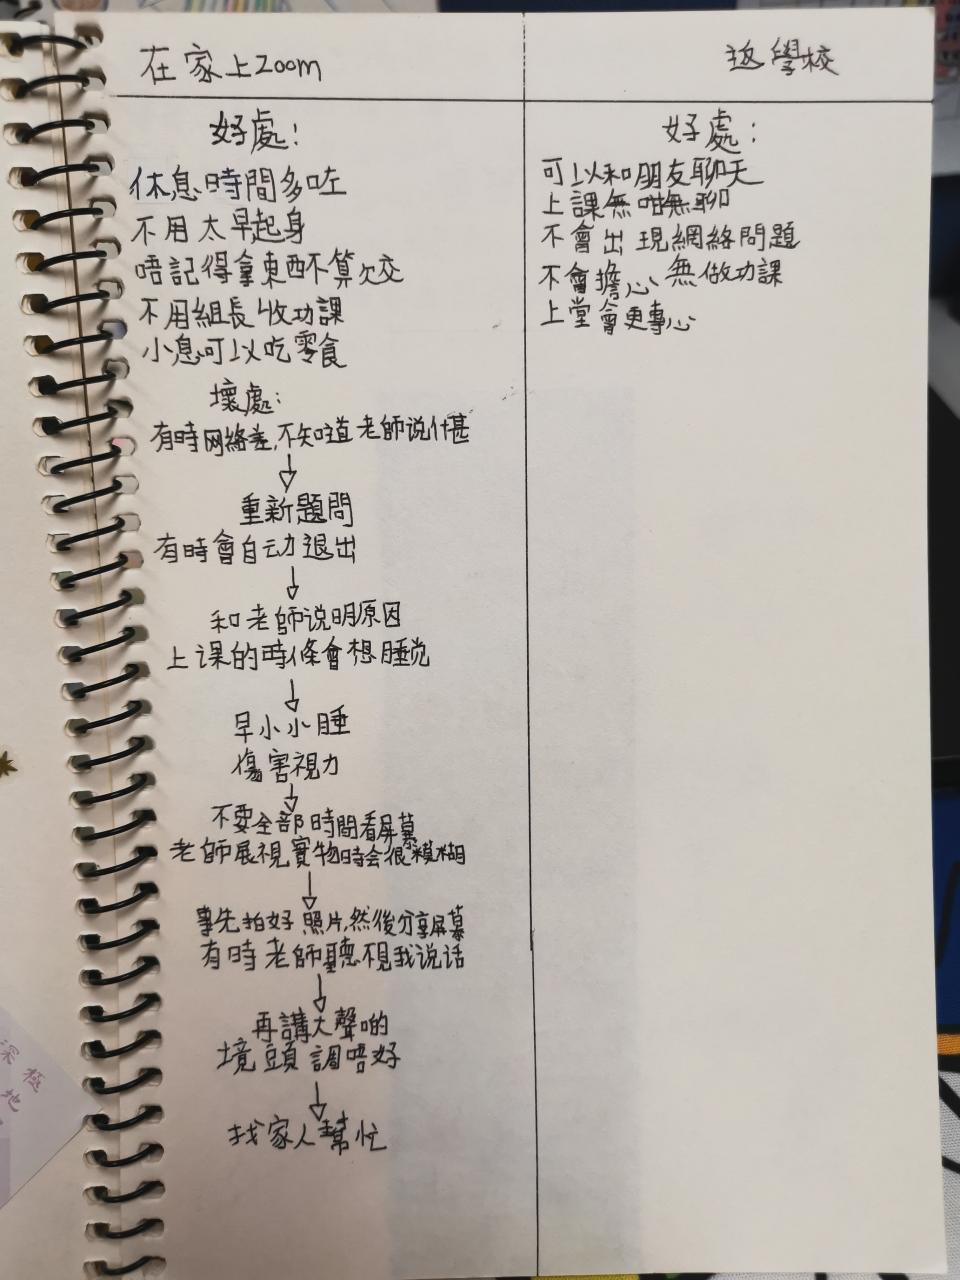 在家上Zoom
好處：
休息時間多咗
不用太早起身
唔記得拿東西不算欠交
不用組長收功課
小息可以吃零食
壞處：
有時网絡差,不知道老師说什甚
↓
重新題問
有時會自动退出
↓
和老師说明原因
上课的時候會想睡觉
↓
早小小睡
傷害視力
↓
不要全部時間看屏幕
老師展視實物時会很模糊
↓
事先拍好照片,然後分享屏幕
有時老師聽不見我说话
↓
再講大聲啲
境頭調唔好
↓
找家人幫忙
返學校
好處：
可以和朋友聊天
上課無咁無聊
不會出現網絡問題
不會擔心無做功課
上堂會更專心
深
極
地